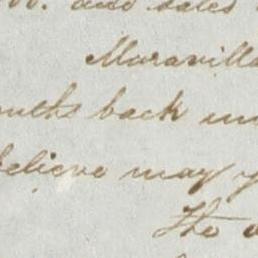 and sales
Maravilla
onths back un
believe may y
The